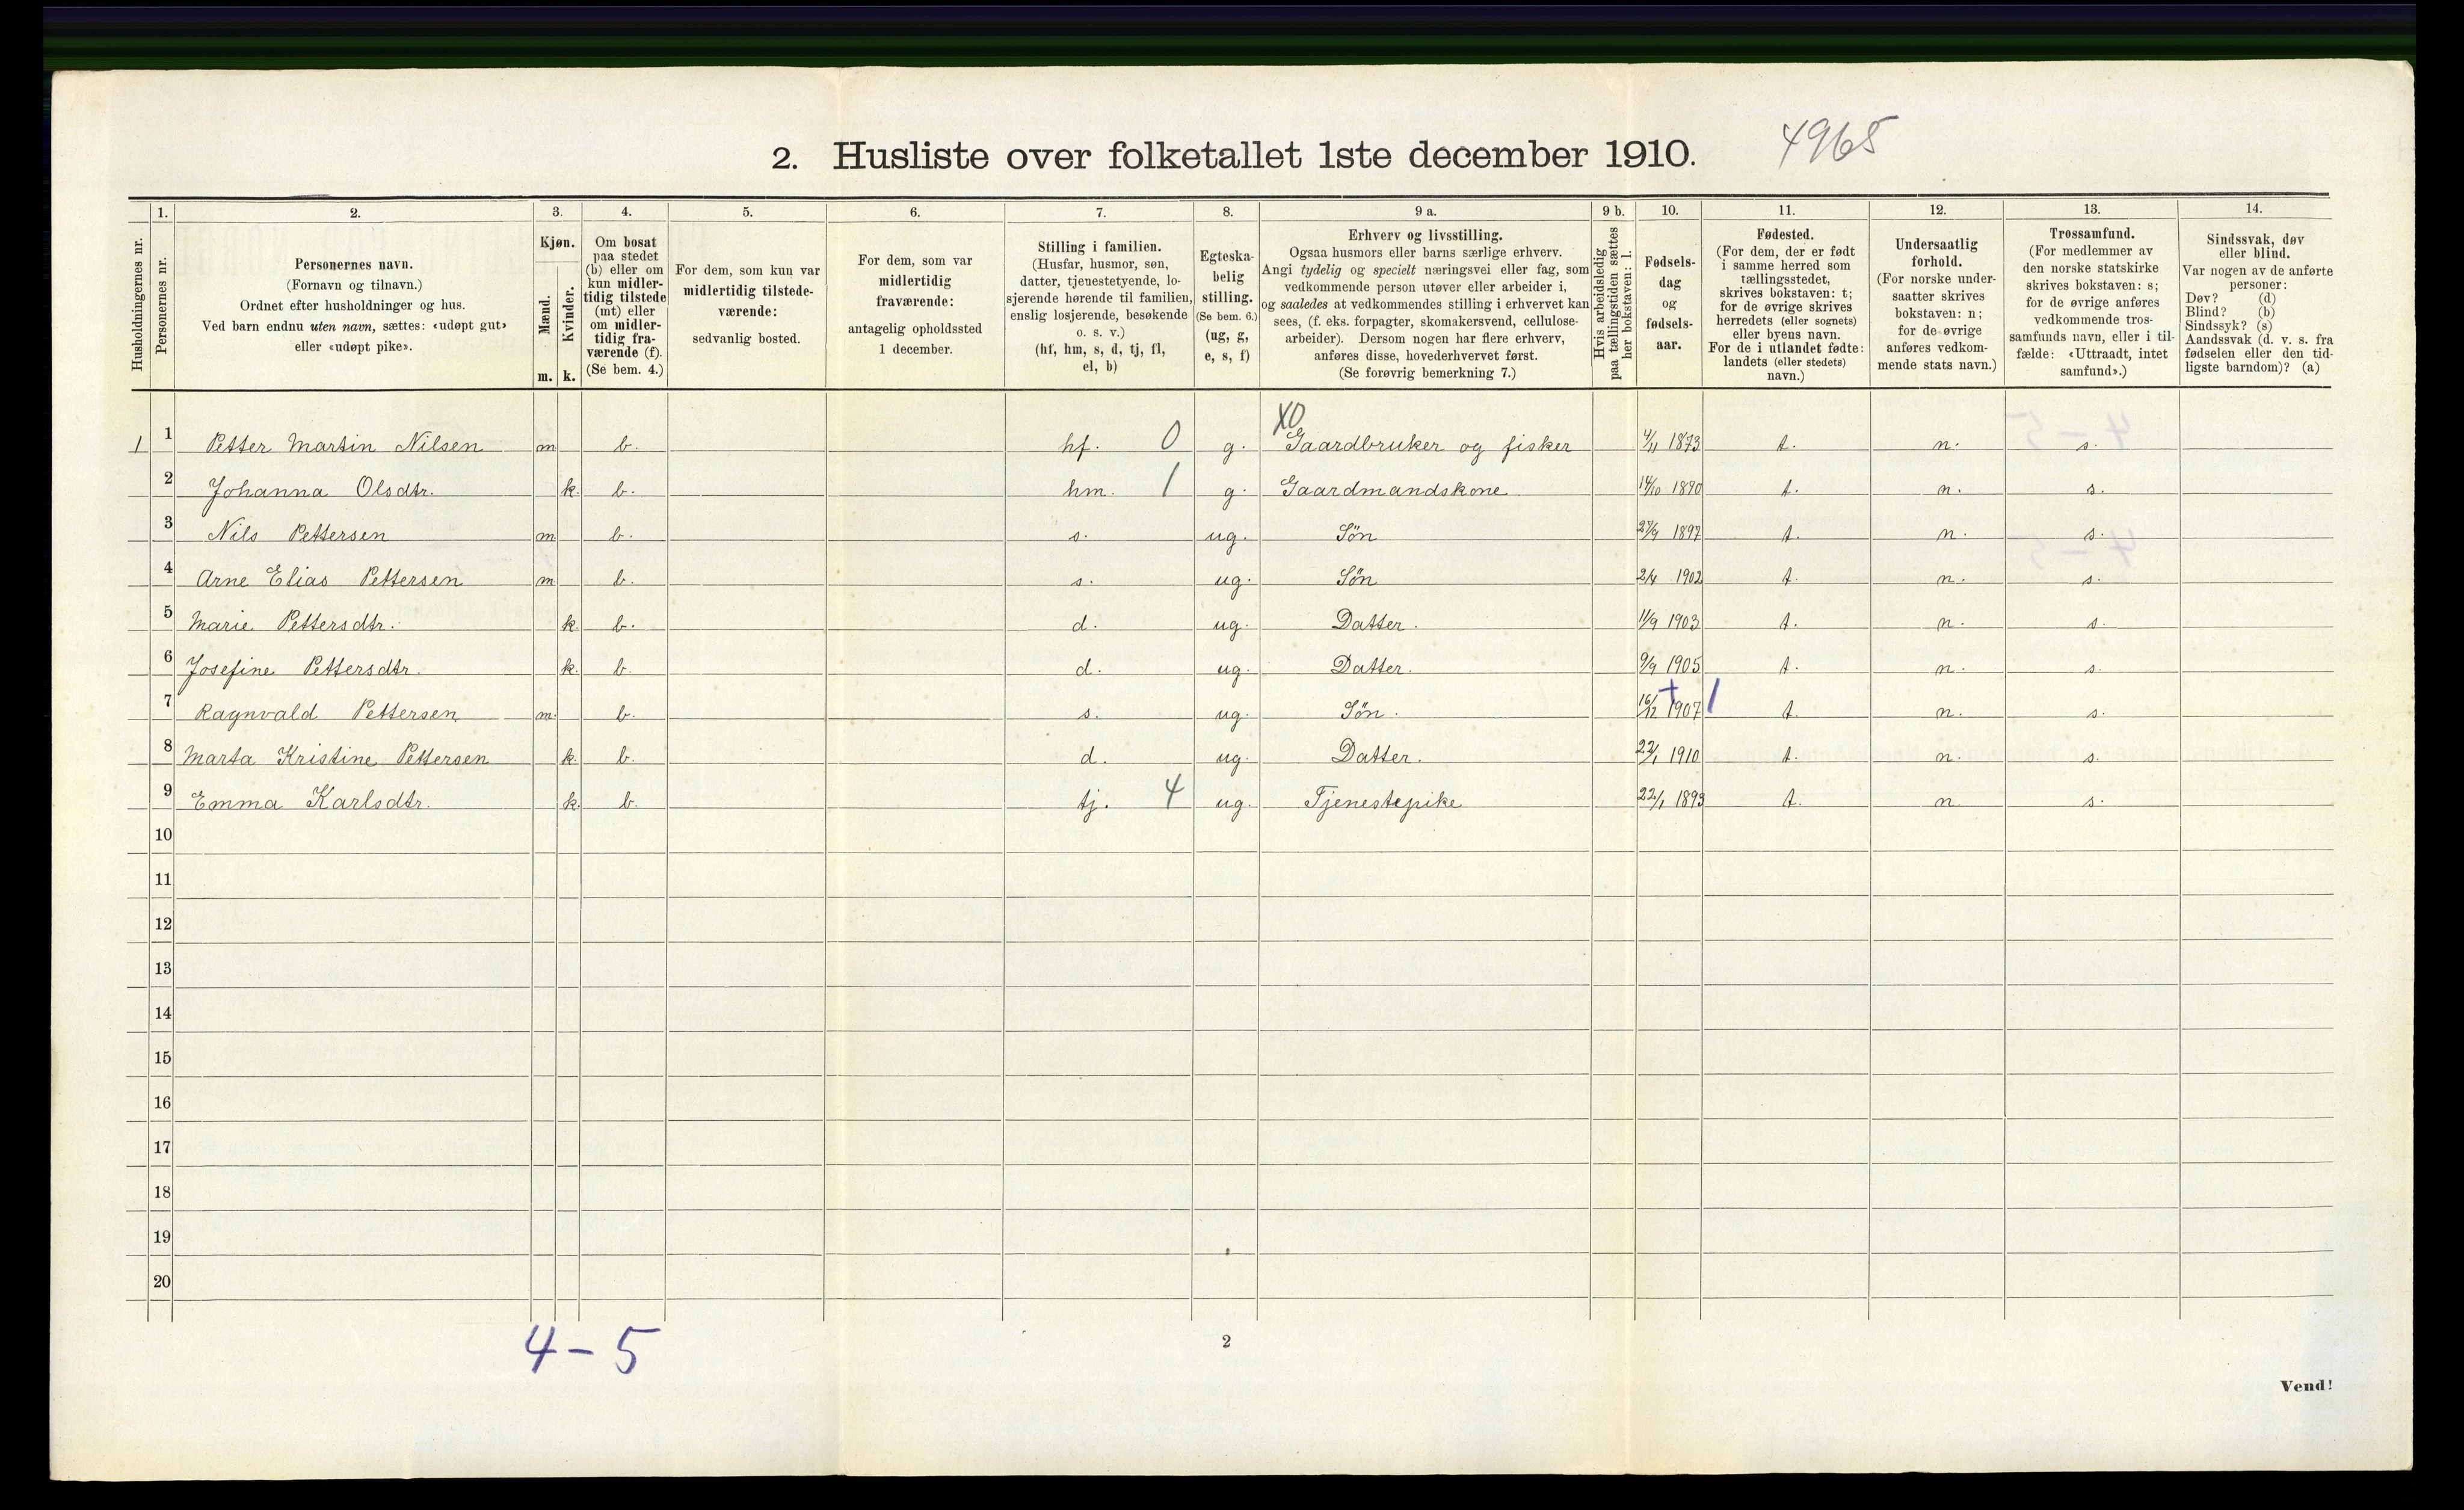 2. Husliste over folketallet 1ste december 1910. 4965
Husholdningernes nr.
1. Personernes nr.
2. Personernes navn.
(Fornavn og tilnavn.)
Ordnet efter husholdninger og hus.
Ved barn endnu uten navn, sættes: «udøpt gut»
eller «udøpt pike».
3. Kjøn.
Mænd. Kvinder.
m. k.
4. Om bosat
paa stedet
(b) eller om
kun midler-
tidig tilstede
(mt) eller
om midler-
tidig fra-
værende (f).
(Se bem. 4.)
5. For dem, som kun var
midlertidig tilstede-
værende:
sedvanlig bosted.
6. For dem, som var
midlertidig
fraværende:
antagelig opholdssted
1 december.
7. Stilling i familien.
(Husfar, husmor, søn,
datter, tjenestetyende, lo-
sjerende hørende til familien,
enslig losjerende, besøkende
o. s. v.)
(hf, hm, s, d, tj, fl,
el, b)
8. Egteska-
belig
stilling.
(Se bem. 6.)
(ug, g,
e, s, f)
9 a. Erhverv og livsstilling.
Ogsaa husmors eller barns særlige erhverv.
Angi tydelig og specielt næringsvei eller fag, som
vedkommende person utøver eller arbeider i,
og saaledes at vedkommendes stilling i erhvervet kan
sees, (f. eks. forpagter, skomakersvend, cellulose-
arbeider). Dersom nogen har flere erhverv,
anføres disse, hovederhvervet først.
(Se forøvrig bemerkning 7.)
9 b. Hvis arbeidsledig
paa tællingstiden sættes
her bokstaven: l.
10. Fødsels-
dag
og
fødsels-
aar.
11. Fødested.
(For dem, der er født
i samme herred som
tællingsstedet,
skrives bokstaven: t;
for de øvrige skrives
herredets (eller sognets)
eller byens navn.
For de i utlandet fødte:
landets (eller stedets)
navn.)
12. Undersaatlig
forhold.
(For norske under-
saatter skrives
bokstaven: n;
for de øvrige
anføres vedkom-
mende stats navn.)
13. Trossamfund.
(For medlemmer av
den norske statskirke
skrives bokstaven: s;
for de øvrige anføres
vedkommende tros-
samfunds navn, eller i til-
fælde: «Uttraadt, intet
samfund».)
14. Sindssvak, døv
eller blind.
Var nogen av de anførte
personer:
Døv? (d)
Blind? (b)
Sindssyk? (s)
Aandssvak (d. v. s. fra
fødselen eller den tid-
ligste barndom)? (a)
X0
1 1 Petter Martin Nilsen m b. hf. 0 g. Gaardbruker og fisker 4/11 1873 t. n. s.
2 Johanna Olsdtr. k. b. hm. 1 g. Gaardmandskone 14/10 1870 t. n. s.
3 Nils Pettersen m b. s. ug. Søn 27/9 1897 t. n. s.
4 Arne Elias Pettersen m b. s. ug. Søn 2/4 1902 t. n. s.
5 Marie Pettersdtr. k. b. d. ug. Datter. 11/9 1903 t. n. s.
6 Josefine Pettersdtr. k. b. d. ug. Datter. 9/9 1905 t. n. s.
7 Ragnvald Pettersen m. b. s. ug. Søn. 16/12 1907 + 1 t. n. s.
8 Marta Kristine Pettersen k. b. d. ug. Datter. 22/1 1910 t. n. s.
9 Emma Karlsdtr. k. b. tj. 4 ug. Tjenestepike 22/1 1893 t. n. s.
10
11
12
13
14
15
16
17
18
19
20
4-5
2
Vend!